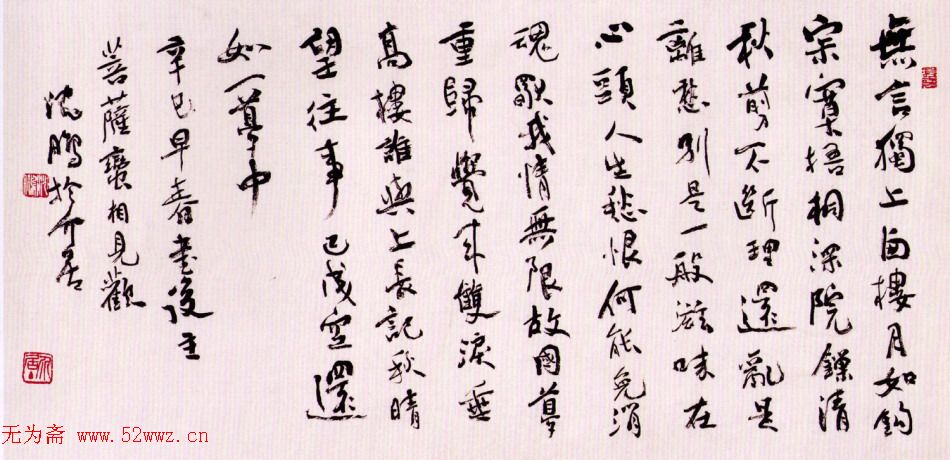 無言獨上西樓月如鉤
寂寞梧桐深院鎖清
秋剪不斷理還亂是
離愁別是一般滋味在
心頭人生愁恨何能免消
魂獨我情無限故國夢
重歸覺來雙淚垂
高樓誰與上長記秋晴
望往事已成空還
如一夢中
辛巳早春書後主
菩薩蠻相見歡
沈鵬於介居
无为斋 www.52wwz.cn